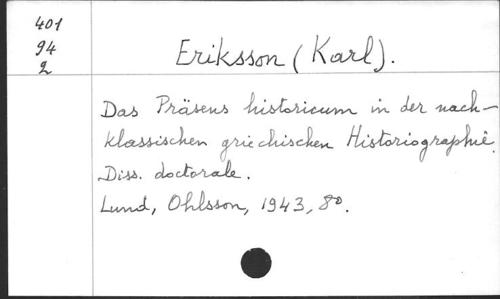 401
94
2
Eriksson (Karl).
Das Präsens historicum in der nach-
klassischen griechischen Historiographie.
Diss. doctorale.
Lund, Ohlsson, 1943, 8º.